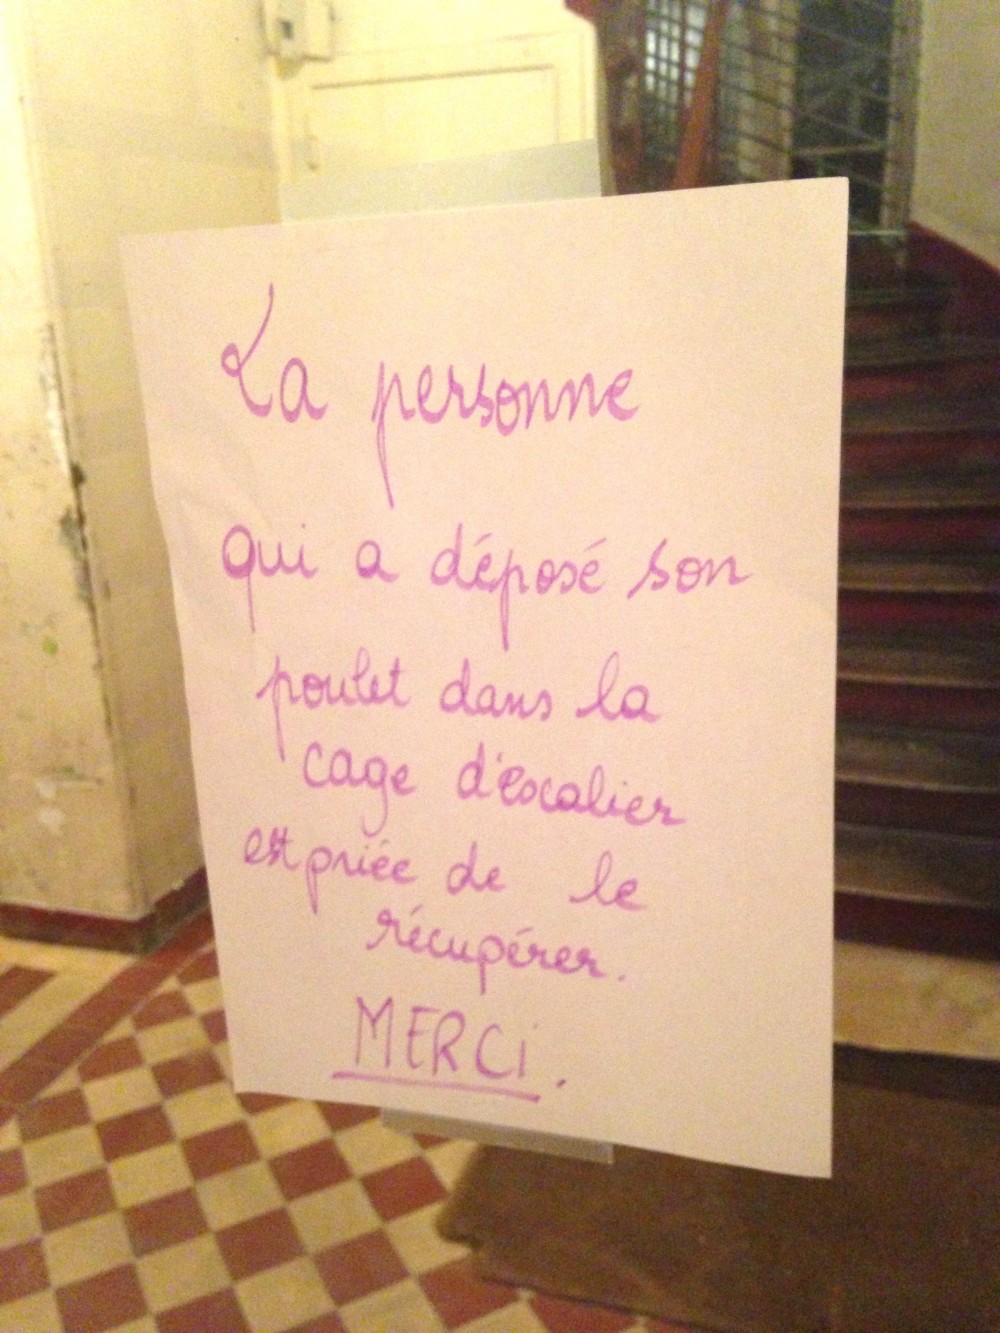 La personne
qui a déposé son
poulet dans la
cage d'escalier
est priée de le
récupérer.
MERCi.